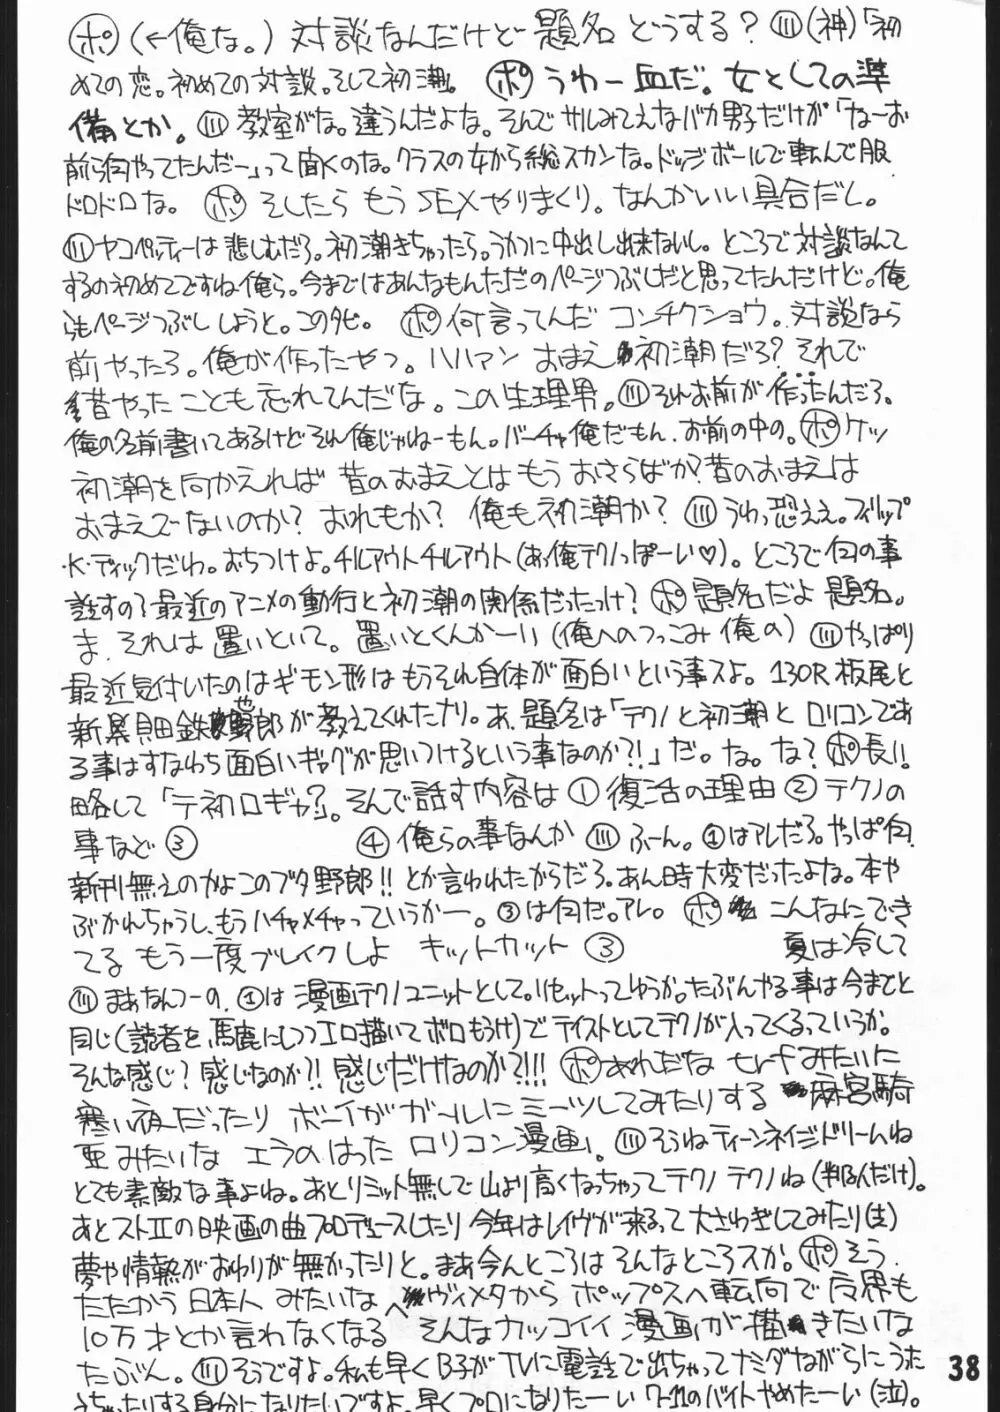 ポ(←俺な。)対談なんだけど題名どうする?川(神)「初
めての恋。初めての対談。そして初潮」。ポうわー血だ。女としての準
備とか。川教室がな。違うんだよな。そんでサルみてえなバカ男子だけが「なーお
前ら何やってたんだー」って聞くのな。クラスの女から総スカンな。ドッジボールで転んで服
ドロドロな。ポそしたらもうSEXやりまくり。なんかいい具合だし。
川ヤコペッティーは悲しむだろ。初潮きちゃったら。うかつに中出し出来ないし。ところで対談なんて
するの初めてですね俺ら。今まではあんなもんただのページつぶしだと思ってたんだけど。俺
らもページつぶししようと。このタビ。ポ何言ってんだコンチクショウ。対談なら
前やったろ。俺が作ったやつ。ハハアンおまえ初潮だろ?それで
昔やったことも忘れてんだな。この生理男。川それお前が作ったんだろ。
俺の名前書いてあるけどそれ俺じゃねーもん。バーチャ俺だもん。お前の中の。ポケッ
初潮を向かえれば昔のおまえとはもうおさらばか?昔のおまえは
おまえでないのか?おれもか?俺も初潮か?川うわっ恐ええ。フィリップ
・K・ディックだわ。おちつけよ。チルアウトチルアウト(あっ俺テクノっぽーい♡)。ところで何の事
話すの?最近のアニメの動行と初潮の関係だったっけ?ポ題名だよ題名。
ま、それは置いといて。置いとくんかーい(俺へのつっこみ俺の)川やっぱり
最近気付いたのはギモン形はもうそれ自体が面白いという事スよ。130R板尾と
新黒貝田鉄野せ郎が教えてくれたナリ。あ、題名は「テクノと初潮とロリコンであ
る事はすなわち面白いギャグが思いつけるという事なのか?!」だ。な。な?ポ長い!
略して「テ初ロギャ?」。そんで話す内容は①復活の理由②テクノの
事など③ ④俺らの事なんか川ふーん。①はアレだろ。やっぱ何
新刊無えのかよこのブタ野郎!!とか言われたからだろ。あん時大変だったよな。本や
ぶかれちゃうし、もうハチャメチャっていうかー。③は何だ。アレ。ポこんなにでき
てるもう一度ブレイクしよ キットカット③ 夏は冷して
川まあなんつーの。①は漫画テクノユニットとして。リセットってゆうか。たぶんやる事は今までと
同じ(読者を馬鹿にしつつエロ描いてボロもうけ)でテイストとしてテクノが入ってくるっていうか。
そんな感じ?感じなのか?!感じだけなのか?!!!ポあれだなtrfみたいに
寒い夜だったりボーイがガールにミーツしてみたりする麻宮騎
亜みたいなエラのはったロリコン漫画」。川そうねティーンネイジドリームね
とても素敵な事よね。あとリミット無しで山より高くなっちゃってテクノテクノね(判る人だけ)。
あとストIIの映画の曲プロデュースしたり今年はレイヴが来るって大さわぎしてみたり(主)
夢や情熱がおわりが無かったりと。まあ今んところはそんなところスか。ポそう
たたかう日本人みたいなヘヴィメタからポップスへ転向で魔界も
10万才とか言わなくなるそんなカッコイイ漫画が描きたいな
たぶん。川そうですよ。私も早くB子がTVに電話で出ちゃってナミダながらにうた
うちゃったりする身分になりたいですよ。早くプロになりたーいワ-11のバイトやめたーい(泣)。
38